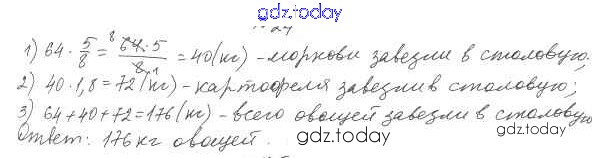 gdz.today
1) 64 · 5/8 = 64·5/8 = 40 (кг) - моркови завезли в столовую.
2) 40 · 1,8 = 72 (кг) - картофеля завезли в столовую;
3) 64 + 40 + 72 = 176 (кг) - всего овощей завезли в столовую
Ответ: 176 кг овощей.
gdz.today
gdz.today